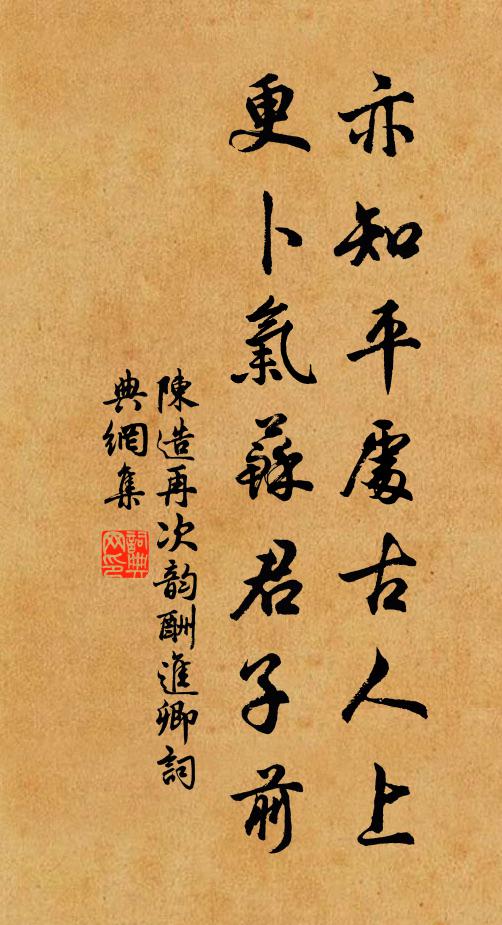 亦知平處古人上
更卜氣蘇君子前
陳造再次韵酬進卿詞
典網集
詞典网印